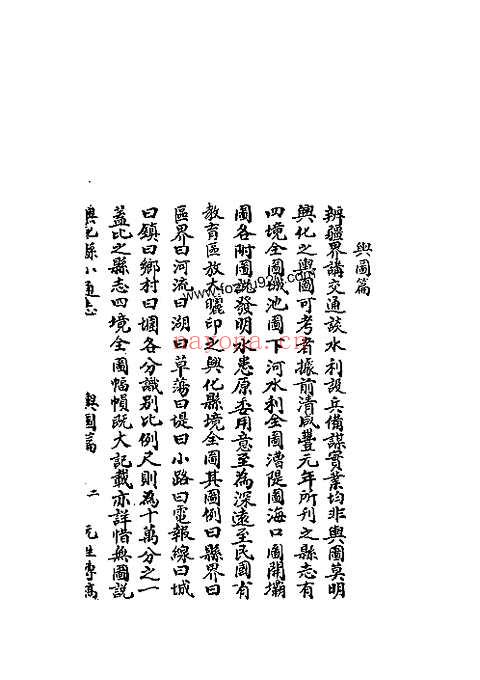 輿圖篇
辨疆界講交通談水利設兵備謀實業均非輿圖莫明
興化之輿圖可考者據前清咸豐元年所刊之縣志有
四境全圖城池圖下河水利全圖漕隄圖海口圖開壩
圖各附圖說發明水患原委用意至為深遠至民國有
教育區放大曬印之興化縣境全圖其圖例曰縣界曰
區界曰河流曰湖曰草蕩曰堤曰小路曰電報線曰城
曰鎮曰鄉村曰堰各分識別比例尺則為十萬分之一
蓋比之縣志四境全圖幅幀既大記載亦詳惜無圖說
興化縣小通志 輿圖篇 二 元生專高
www.fozhu920.com
nayona.cn